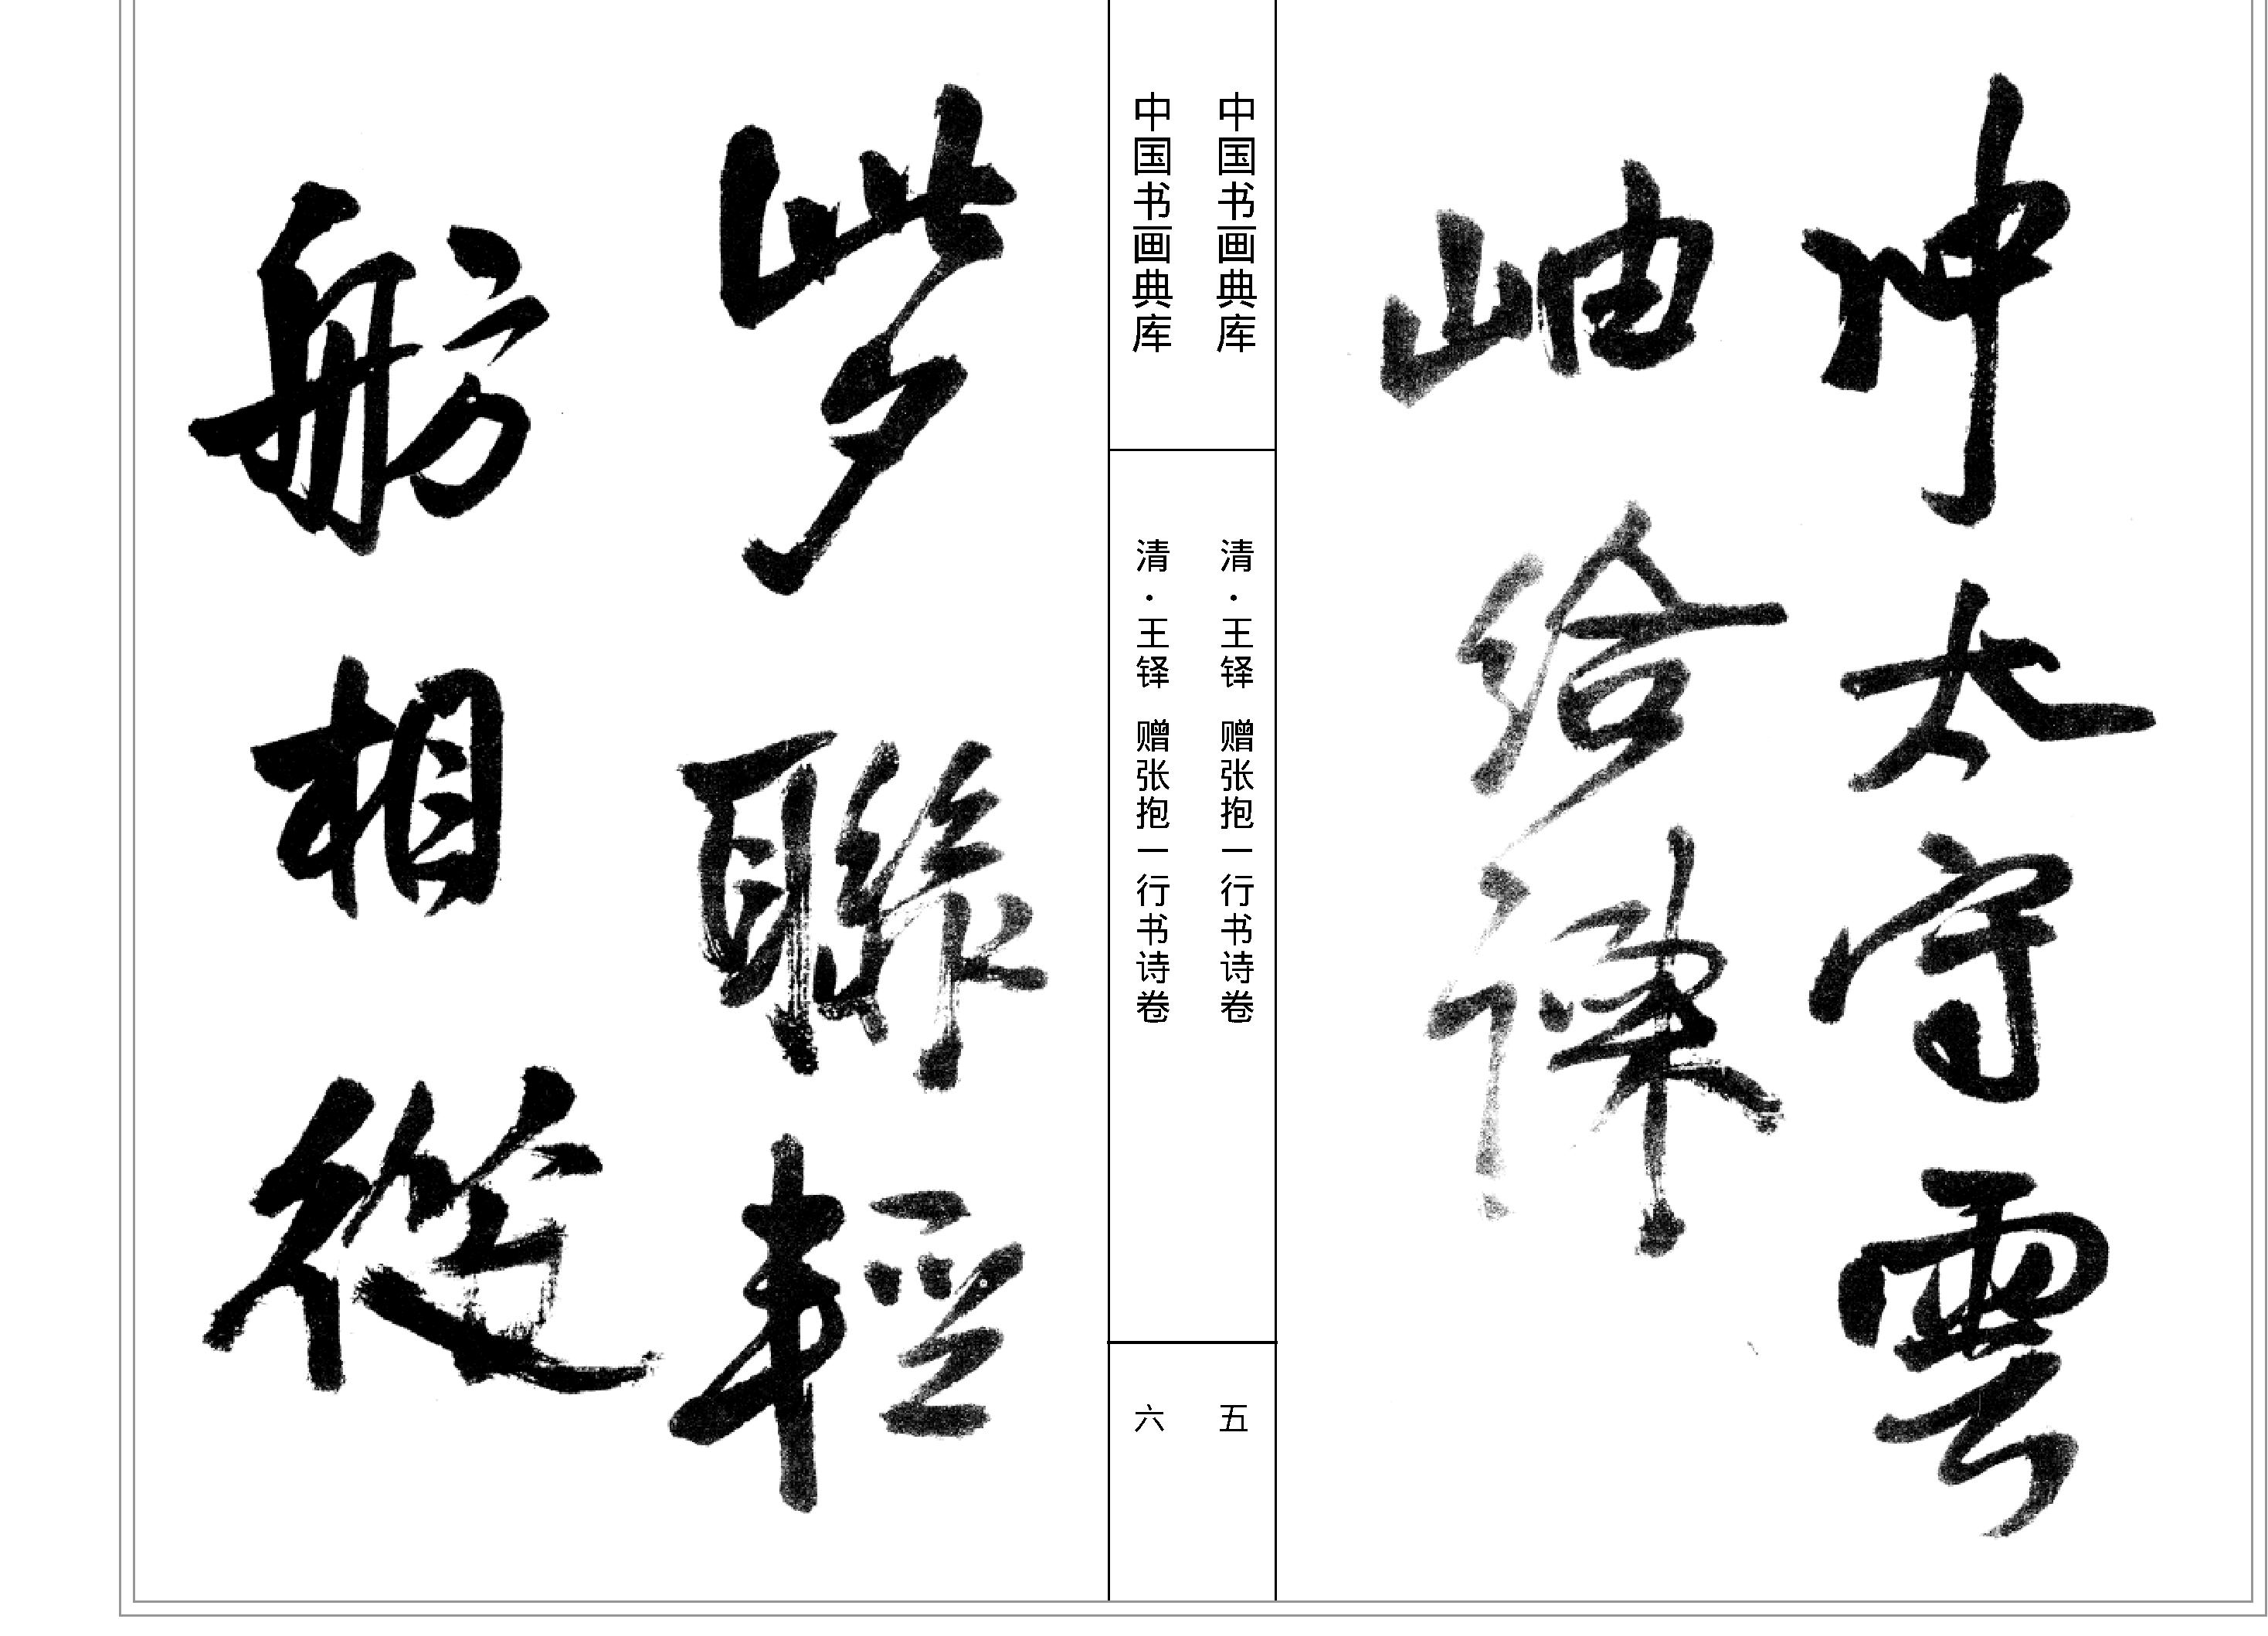 冲太守雲
岫給諫
中国书画典库
清·王铎 赠张抱一行书诗卷
五
中国书画典库
清·王铎 赠张抱一行书诗卷
六
此夕聯輕
舫相從